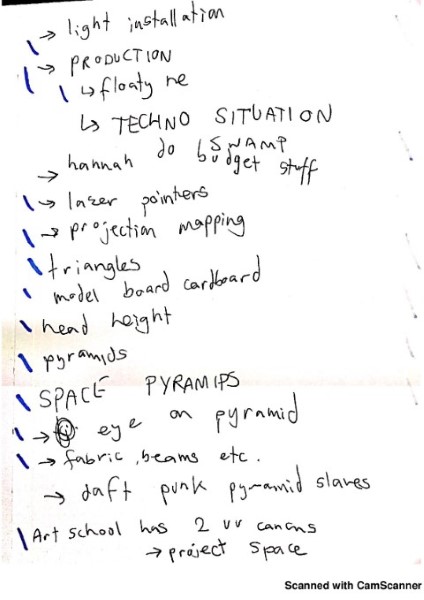 → light installation
\ → PRODUCTION
\ ↳ floaty
↳ TECHNO SITUATION
SWAMP
→ hannah do budget stuff
\ → lazer pointers
\ → projection mapping
\ triangles
\ model board cardboard
\ head height
\ pyramids
\ SPACE PYRAMIDS
\ → eye on pyramid
\ → fabric, beams etc.
→ daft punk pyramid slaves
\ Art school has 2 uv canons
→ project space
Scanned with CamScanner